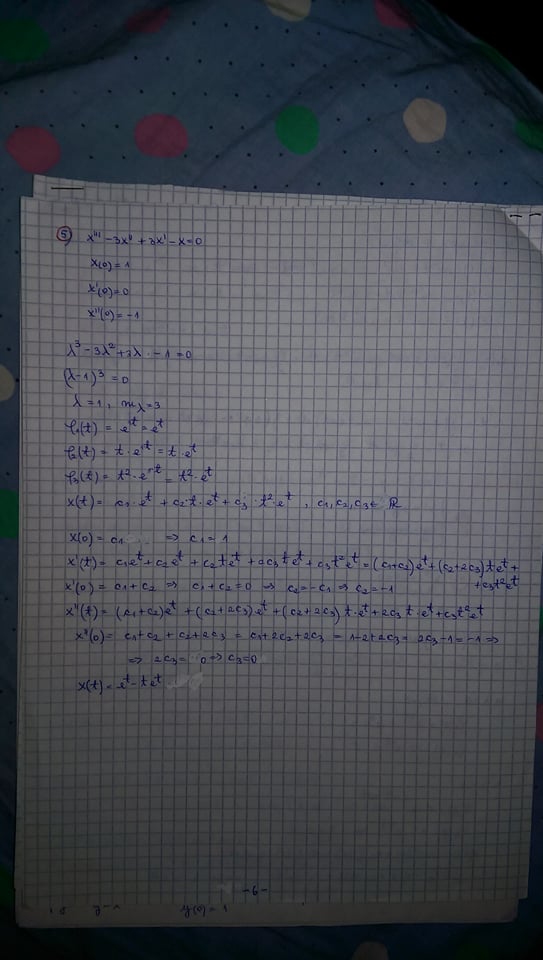 5) x''' - 3x'' + 3x' - x = 0
x(0) = 1
x'(0) = 0
x''(0) = -1
λ³ - 3λ² + 3λ · - 1 = 0
(λ-1)³ = 0
λ = 1, m_λ = 3
φ₁(t) = e^{1t} = e^t
φ₂(t) = t · e^{1t} = t · e^t
φ₃(t) = t² · e^{1t} = t² · e^t
x(t) = c₁ · e^t + c₂ · t · e^t + c₃ · t² · e^t, c₁, c₂, c₃ ∈ ℝ
x(0) = c₁ ⇒ c₁ = 1
x'(t) = c₁e^t + c₂e^t + c₂te^t + 2c₃te^t + c₃t²e^t = (c₁+c₂)e^t + (c₂+2c₃)te^t +
+ c₃t²e^t
x'(0) = c₁ + c₂ ⇒ c₁ + c₂ = 0 ⇒ c₂ = -c₁ ⇒ c₂ = -1
x''(t) = (c₁+c₂)e^t + (c₂+2c₃)e^t + (c₂+2c₃)t · e^t + 2c₃t · e^t + c₃t²e^t
x''(0) = c₁ + c₂ + c₂ + 2c₃ = c₁ + 2c₂ + 2c₃ = 1 - 2 + 2c₃ = 2c₃ - 1 = -1 ⇒
⇒ 2c₃ = 0 ⇒ c₃ = 0
x(t) = e^t - te^t
-6-
y(0) = 1